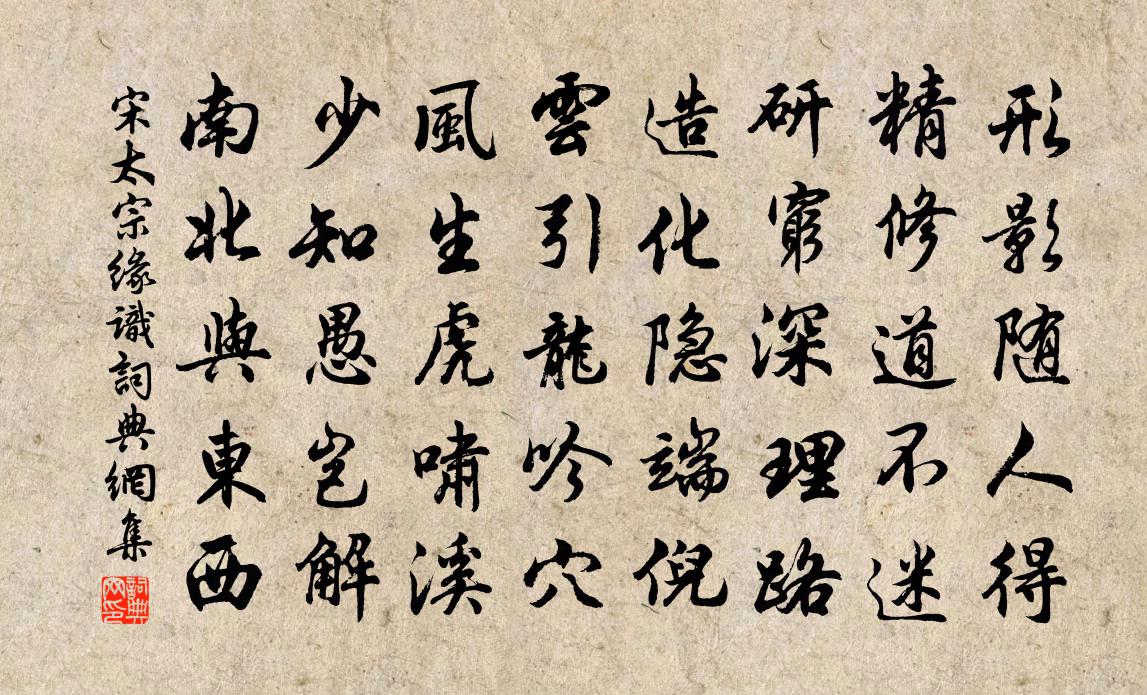 形影随人得
精修道不迷
研窮深理路
造化隐端倪
雲引龍吟穴
風生虎嘯溪
少知愚豈解
南北與東西
宋太宗緣識詞典網集
詞典網印